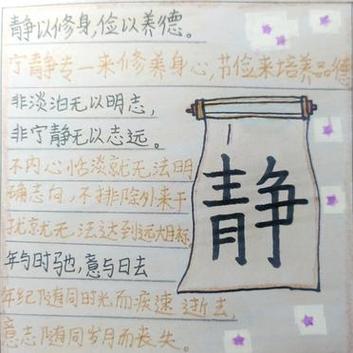 静以修身,俭以养德。
宁静专一来修养身心,节俭来培养品德
非淡泊无以明志,
非宁静无以志远。
不内心恬淡就无法明
确志向,不排除外来干
扰就无法达到远大目标
静
年与时驰,意与日去
年纪随同时光而疾速逝去,
意志随同岁月而丧失。